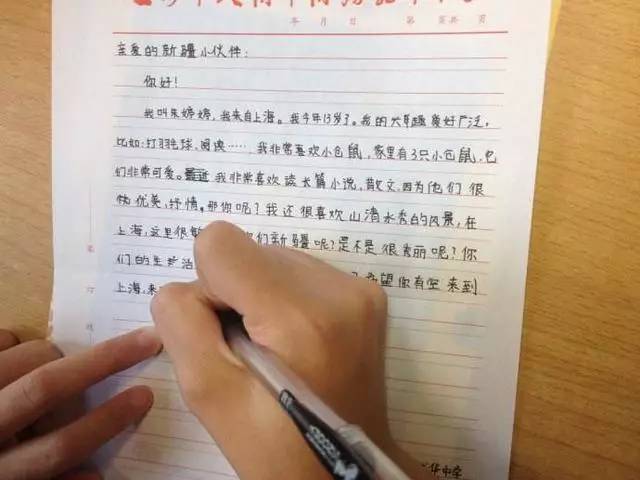 年 月 日 第 页共 页
亲爱的新疆小伙伴:
你好!
我叫朱婷婷,我来自上海。我今年13岁了。我的兴趣爱好广泛,
比如:打羽毛球,阅读……,我非常喜欢小仓鼠,家里有3只小仓鼠,它
们非常可爱。最近我非常喜欢读长篇小说,散文,因为他们很
优美,抒情。那你呢?我还很喜欢山清水秀的风景,在
上海,这里很 们新疆呢?是不是很秀丽呢?你
们的生活 希望你有空来到
上海,来
华中学